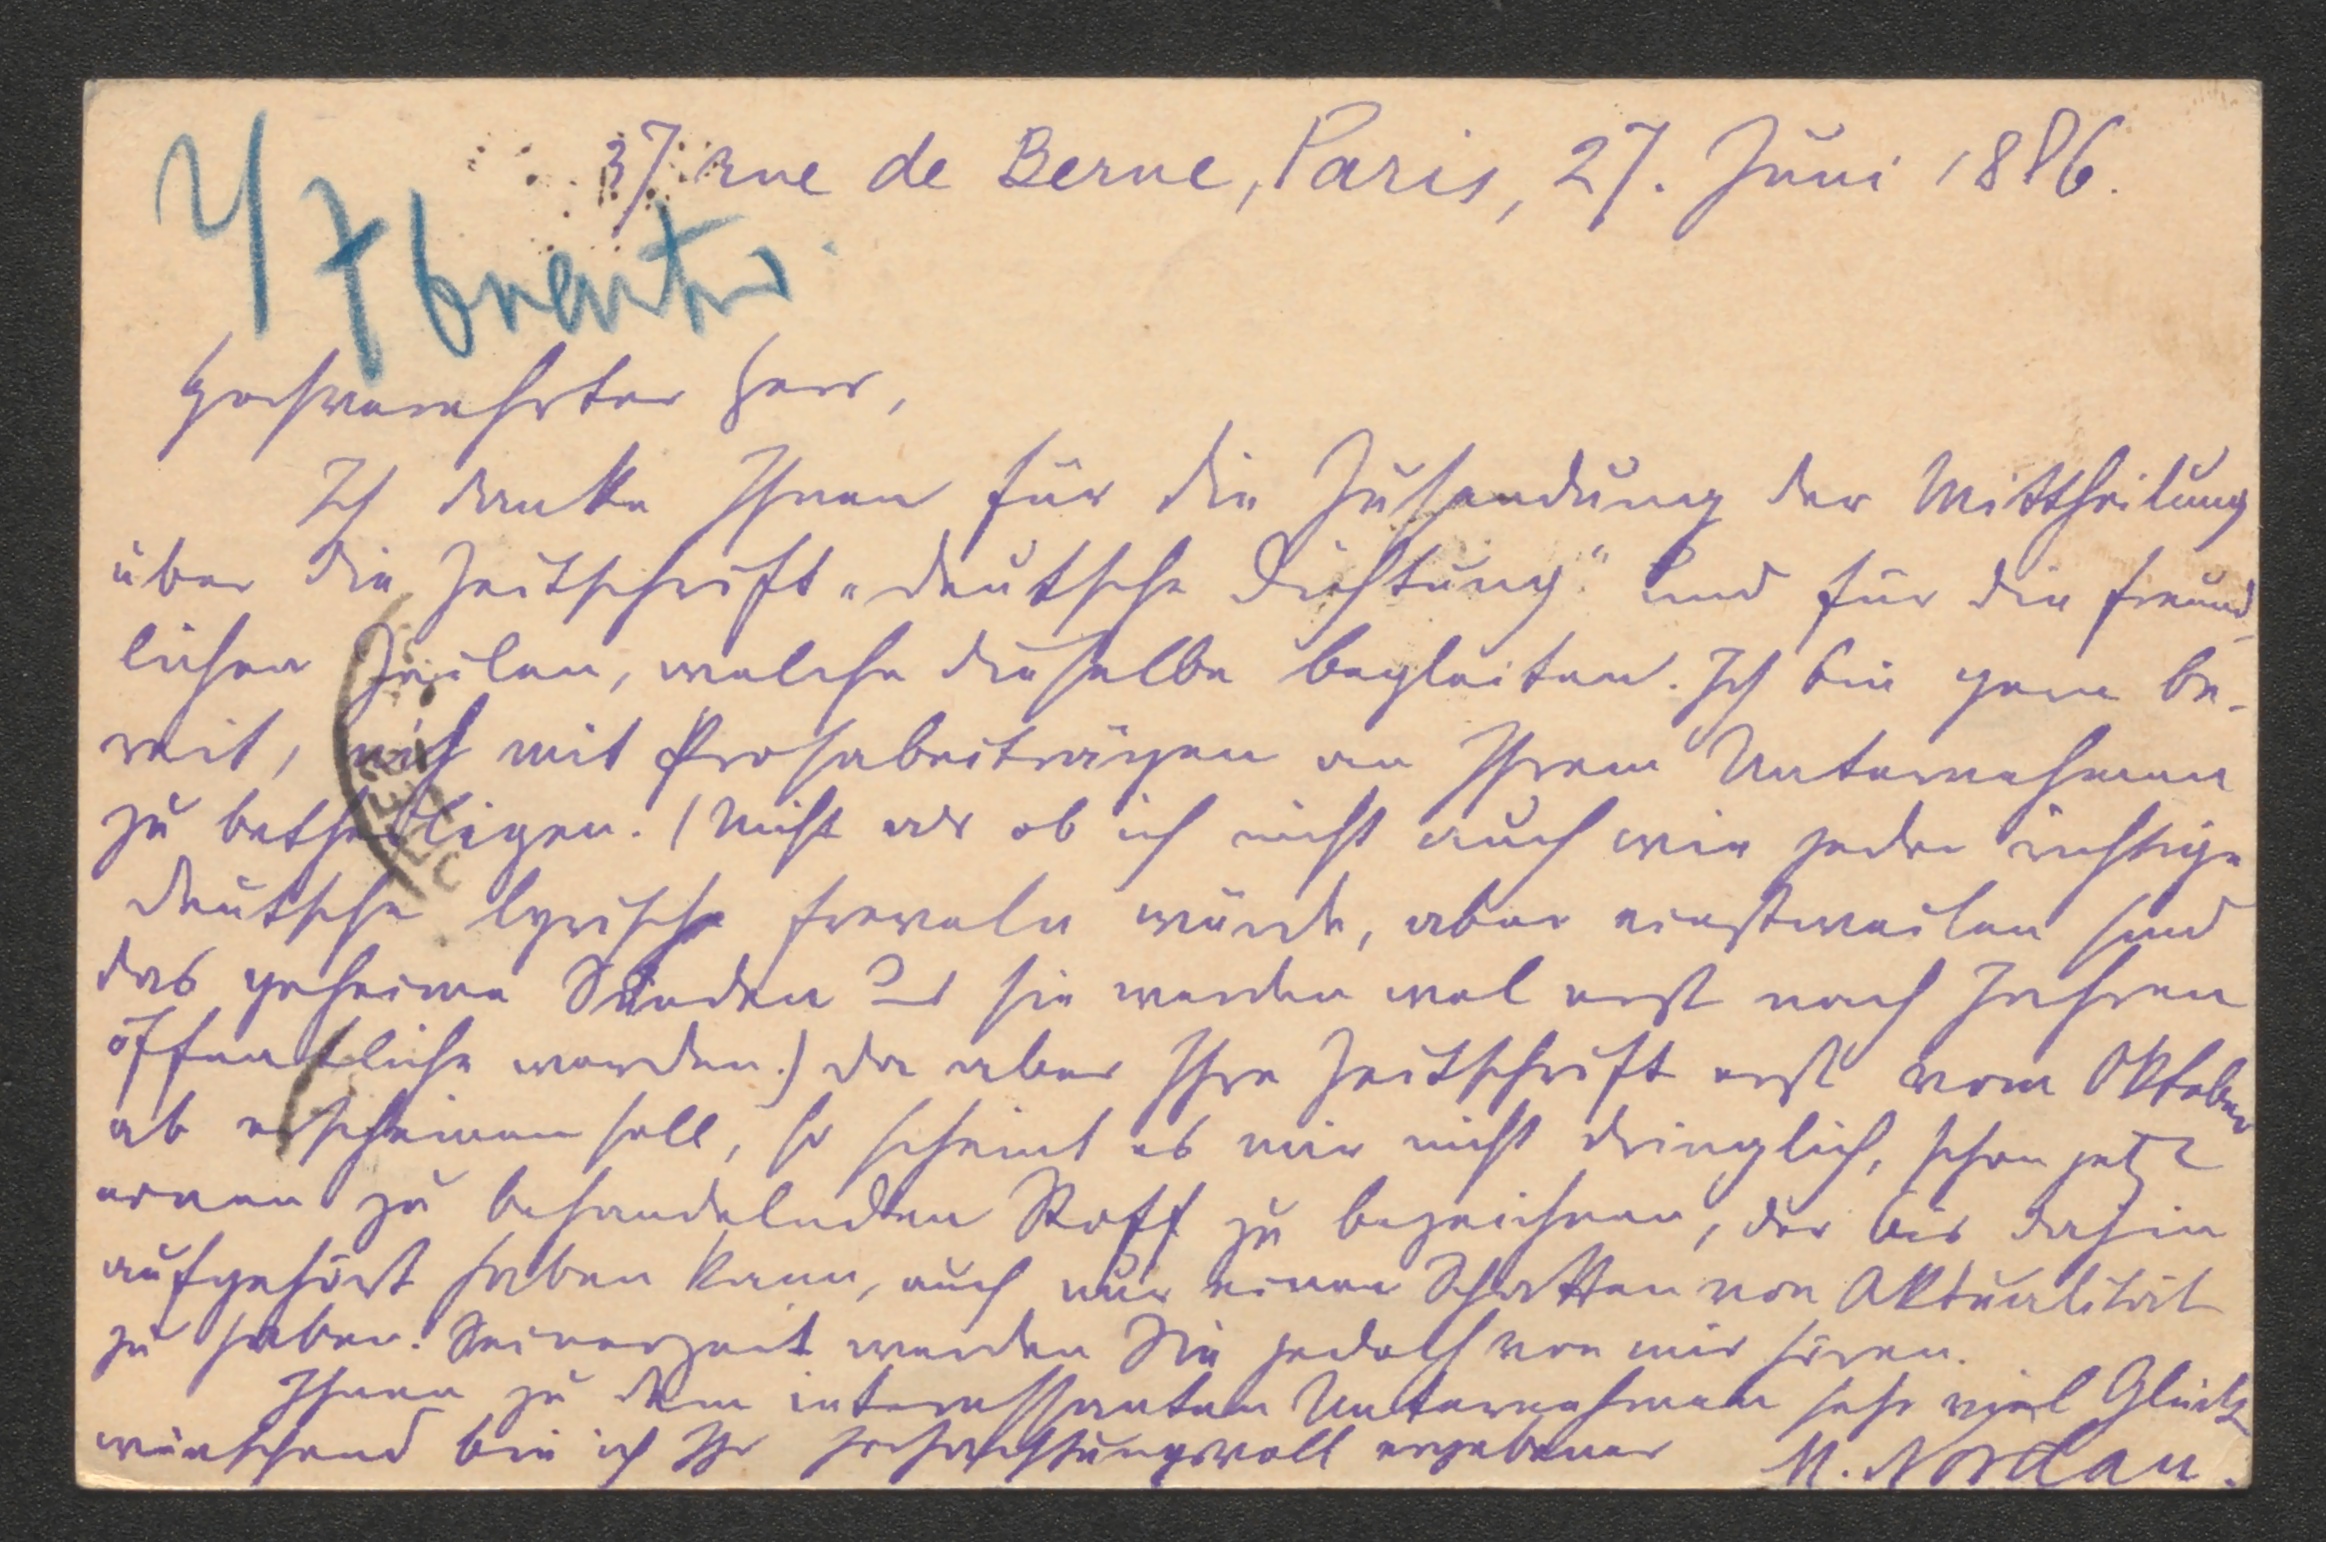 37 rue de Berne, Paris, 27. Juni 1886.
Hochverehrter Herr,
Ich danke Ihnen für die Zusendung der Mittheilung
über die Zeitschrift „deutsche Dichtung“ und für die freund-
lichen Zeilen, welche dieselbe begleiten. Ich bin gern be-
reit, mich mit Prosabeiträgen an Ihrem Unternehmen
zu betheiligen. (Nicht als ob ich nicht auch wie jeder richtige
Deutsche lyrische freveln würde, aber einstweilen sind
das geheime Sünden und sie werden wol erst nach Jahren
öffentliche werden.) Da aber Ihre Zeitschrift erst vom Oktober
ab erscheinen soll, so scheint es mir nicht dringlich, schon jetzt
einen zu behandelnden Stoff zu bezeichnen, der bis dahin
aufgehört haben kann, auch nur einen Schatten von Aktualität
zu haben. Seinerzeit werden Sie jedoch von mir hören.
Ihnen zu dem interessanten Unternehmen sehr viel Glück
wünschend bin ich Ihr hochachtungsvoll ergebener M. Nordau.